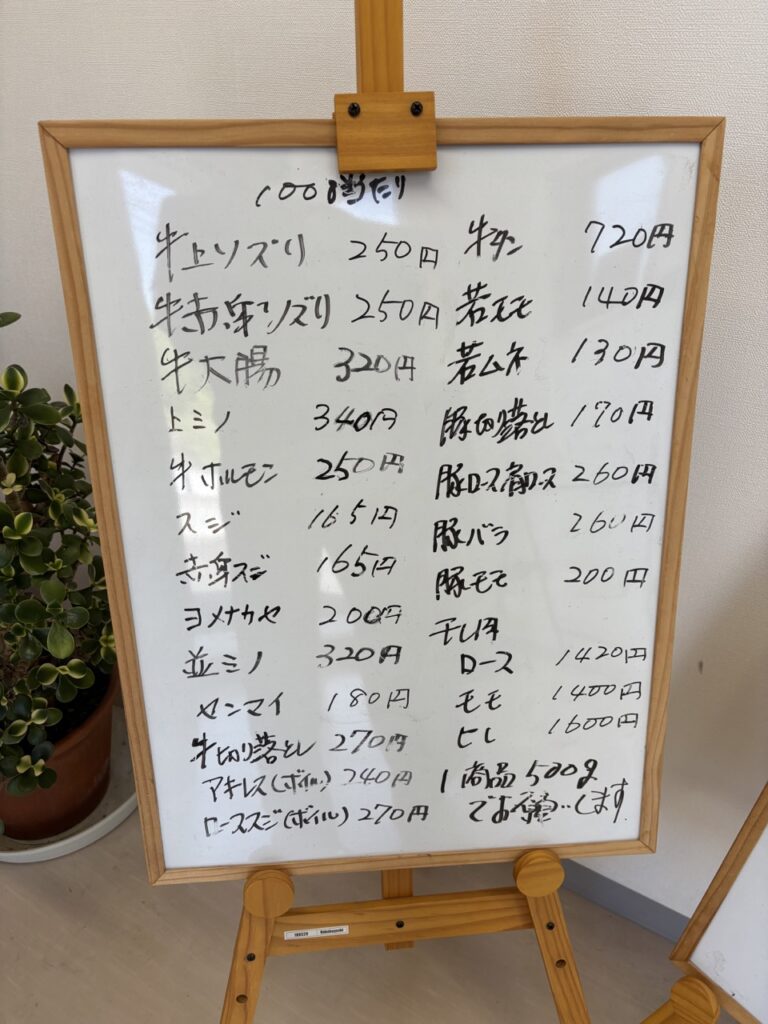 100g当たり
牛上ソズリ 250円
牛赤身ソズリ 250円
牛大腸 320円
上ミノ 340円
牛ホルモン 250円
スジ 165円
赤身スジ 165円
ヨメナカセ 200円
並ミノ 320円
センマイ 180円
牛切り落とし 270円
アキレス(ボイル) 240円
ローススジ(ボイル) 270円
牛タン 720円
若モモ 140円
若ムネ 130円
豚切り落とし 170円
豚ロース肩ロース 260円
豚バラ 260円
豚モモ 200円
干し肉
ロース 1420円
モモ 1400円
ヒレ 1600円
1商品500g
でお願いします